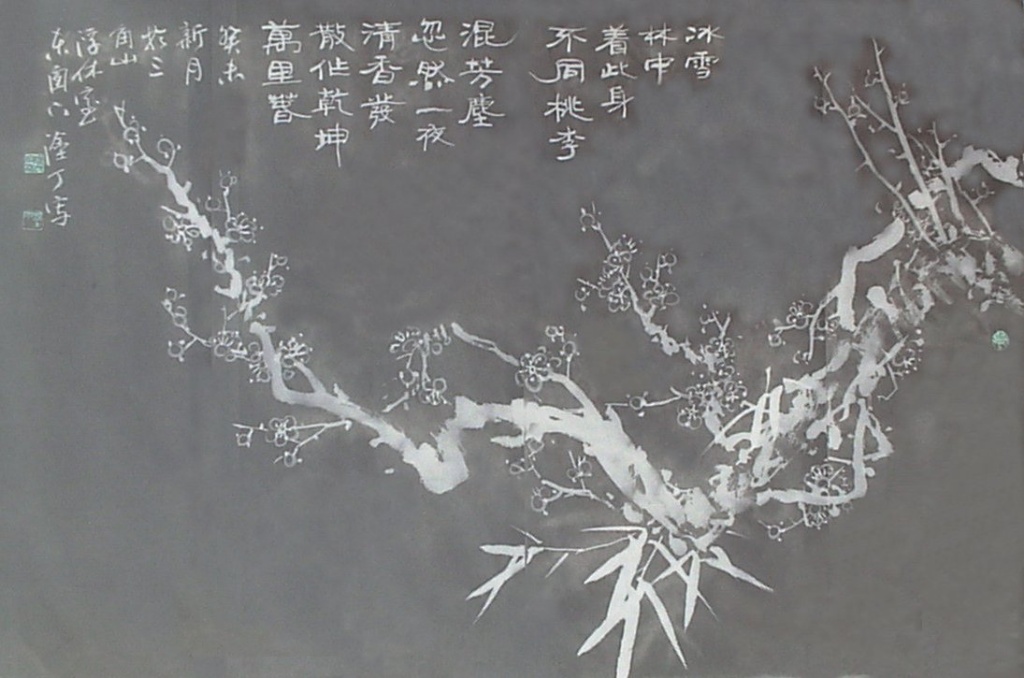 冰雪
林中
着此身
不同桃李
混芳塵
忽然一夜
清香發
散作乾坤
萬里春
癸未
新月
於三
角山
浮休室
东窗下 塗丁写